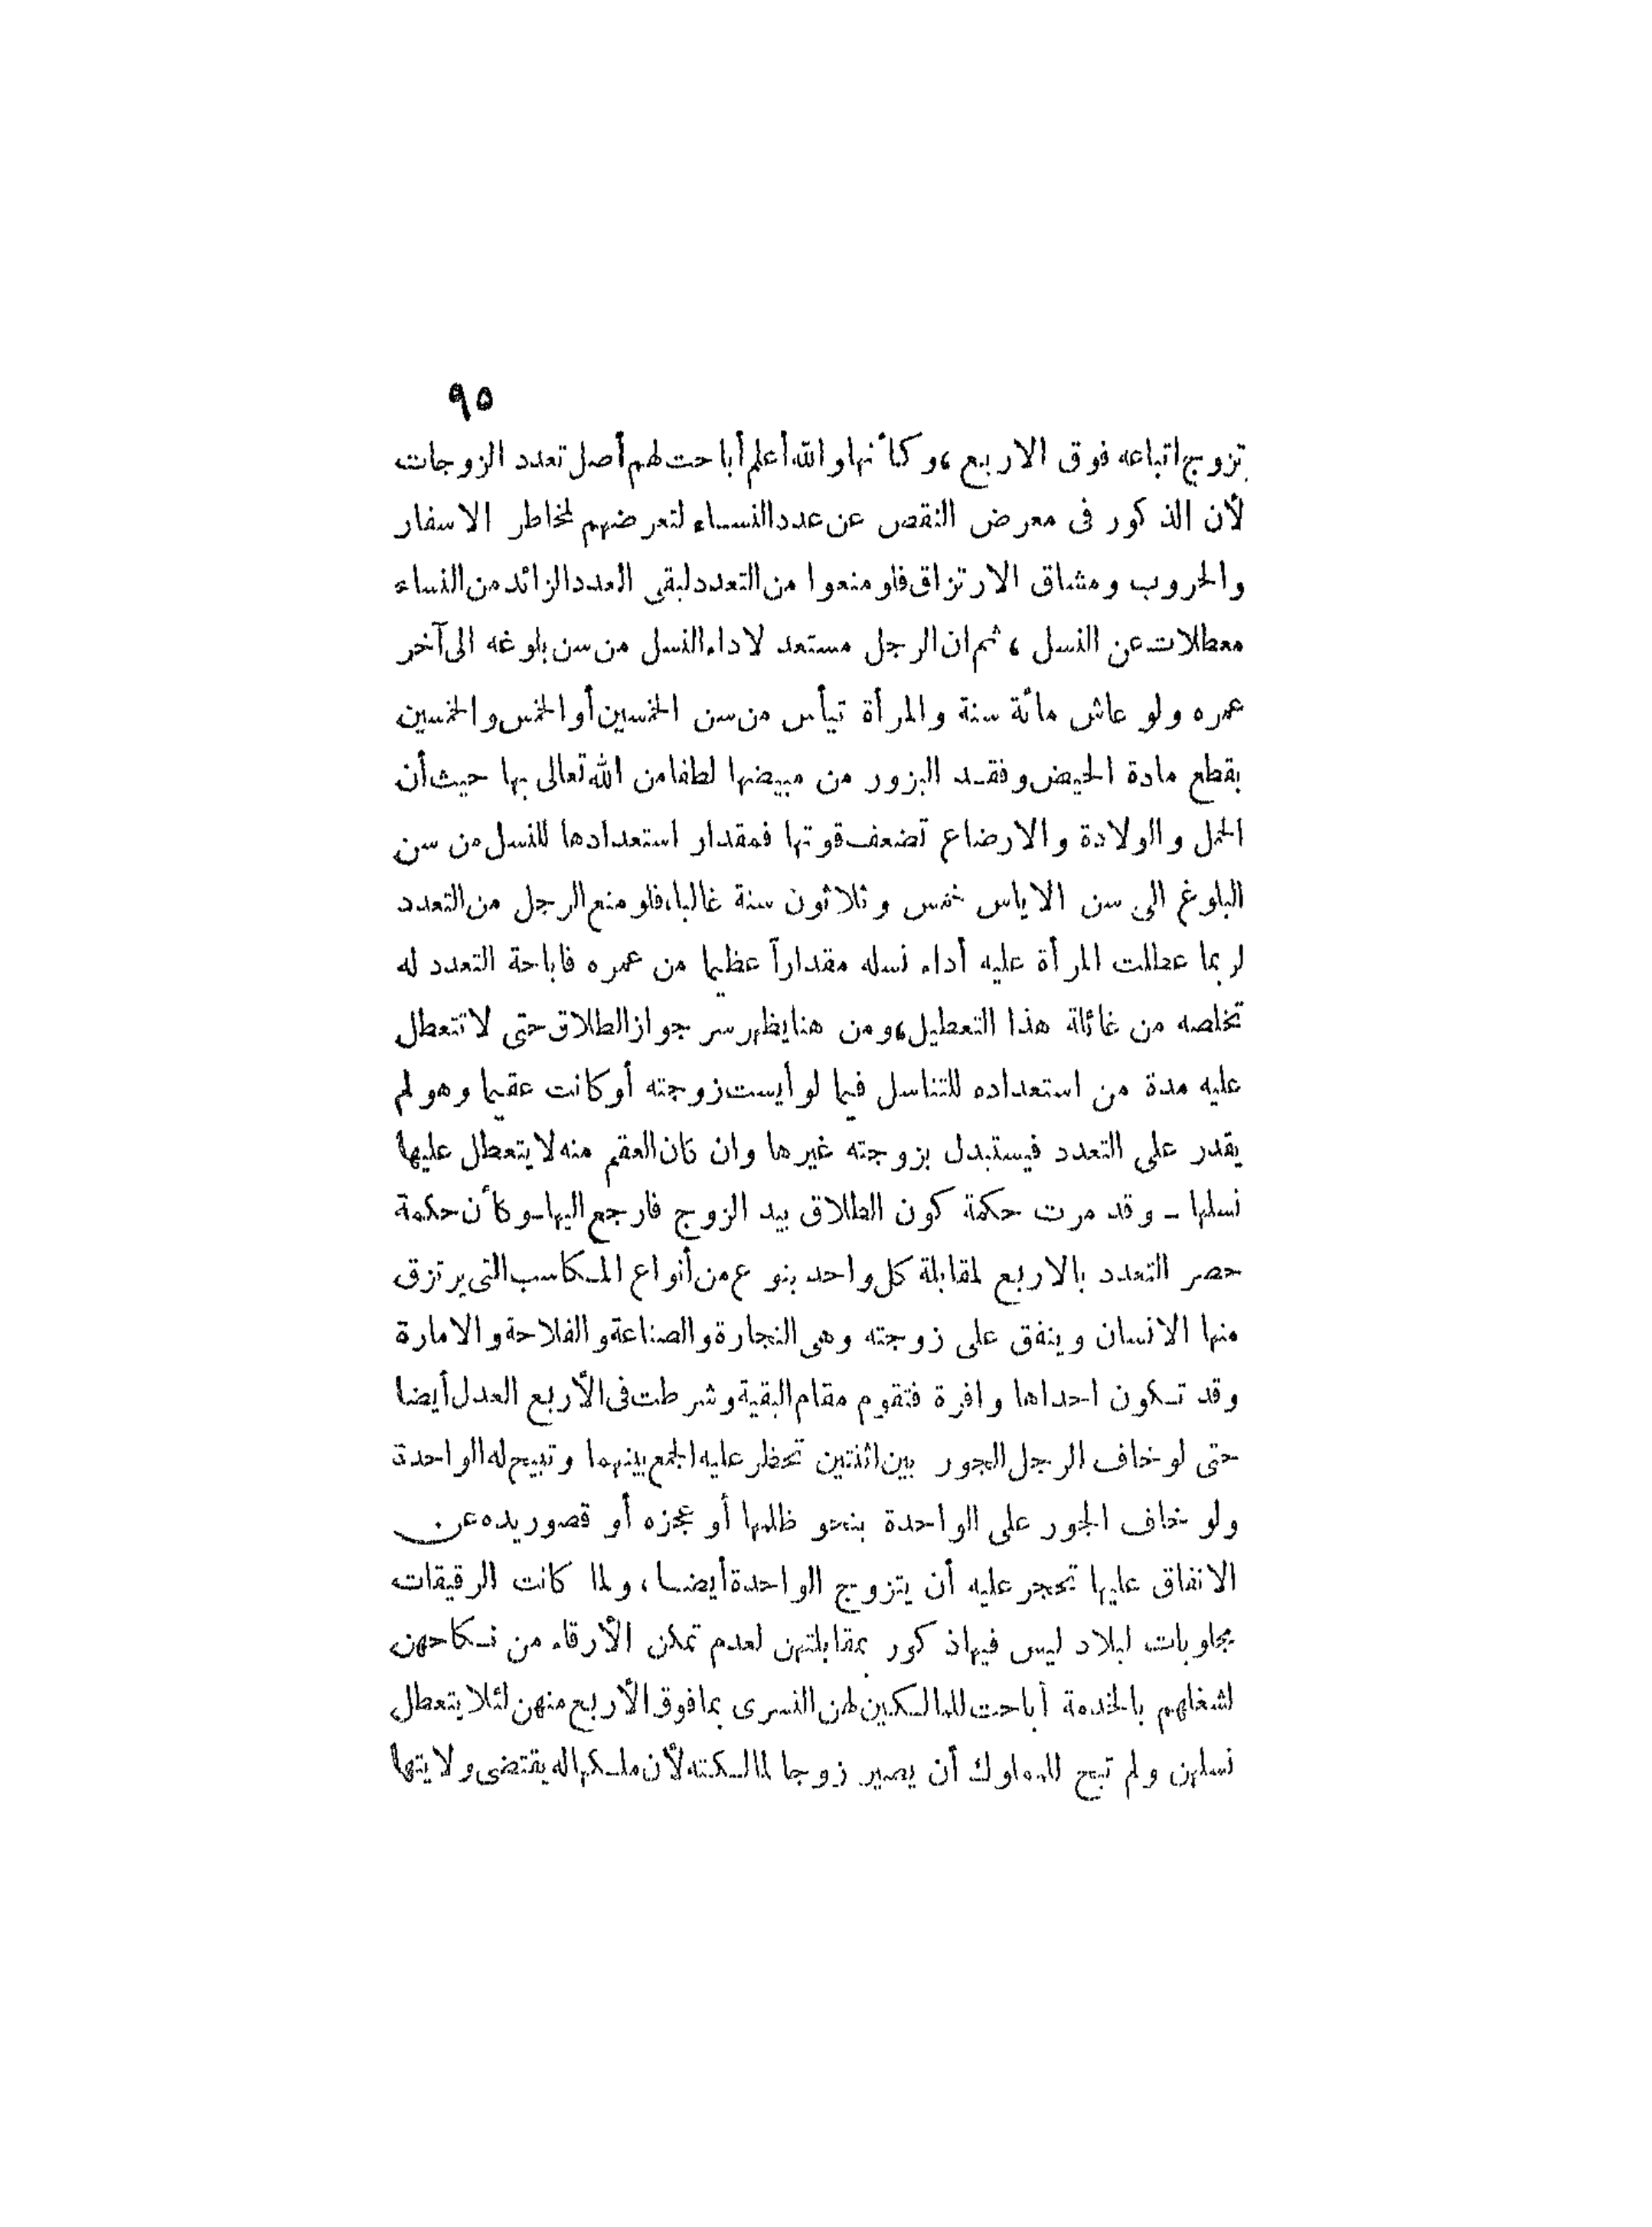 ٩٥
تزوج اتباعه فوق الاربع، وكأنها والله أعلم أباحت لهم أصل تعدد الزوجات
لأن الذكور فى معرض النقص عن عدد النساء لتعرضهم لمخاطر الاسفار
والحروب ومشاق الارتزاق فلو منعوا من التعدد لبقى العدد الزائد من النساء
معطلات عن النسل ، ثم ان الرجل مستعد لاداء النسل من سن بلوغه الى آخر
عمره ولو عاش مائة سنة والمرأة تيأس من سن الخمسين أو الخمس والخمسين
بقطع مادة الحيض وفقد البزور من مبيضها لطفا من الله تعالى بها حيث أن
الحمل والولادة والارضاع تضعف قوتها فمقدار استعدادها للنسل من سن
البلوغ الى سن الاياس خمس وثلاثون سنة غالبا، فلو منع الرجل من التعدد
لربما عطلت المرأة عليه أداء نسله مقداراً عظيما من عمره فاباحة التعدد له
تخلصه من غائلة هذا التعطيل، ومن هنا يظهر سر جواز الطلاق حتى لا تتعطل
عليه مدة من استعداده للتناسل فيما لو أيست زوجته أو كانت عقيما وهو لم
يقدر على التعدد فيستبدل بزوجته غيرها وان كان العقم منه لا يتعطل عليها
نسلها - وقد مرت حكمة كون الطلاق بيد الزوج فارجع اليها - وكأن حكمة
حصر التعدد بالاربع لمقابلة كل واحد بنوع من أنواع المكاسب التى يرتزق
منها الانسان وينفق على زوجته وهى التجارة والصناعة والفلاحة والامارة
وقد تكون احداها وافرة فتقوم مقام البقية وشرطت فى الأربع العدل أيضا
حتى لو خاف الرجل الجور بين اثنتين تحظر عليه الجمع بينهما وتبيح له الواحدة
ولو خاف الجور على الواحدة بنحو ظلمها أو عجزه أو قصور يده عن
الانفاق عليها تحجر عليه أن يتزوج الواحدة أيضا ، ولما كانت الرقيقات
مجلوبات لبلاد ليس فيها ذكور بمقابلتهن لعدم تمكن الأرقاء من نكاحهن
لشغلهم بالخدمة أباحت للمالكين لهن التسرى بما فوق الأربع منهن لئلا يتعطل
نسلهن ولم تبح للمملوك أن يصير زوجا لمالكته لأن ملكها له يقتضى ولايتها